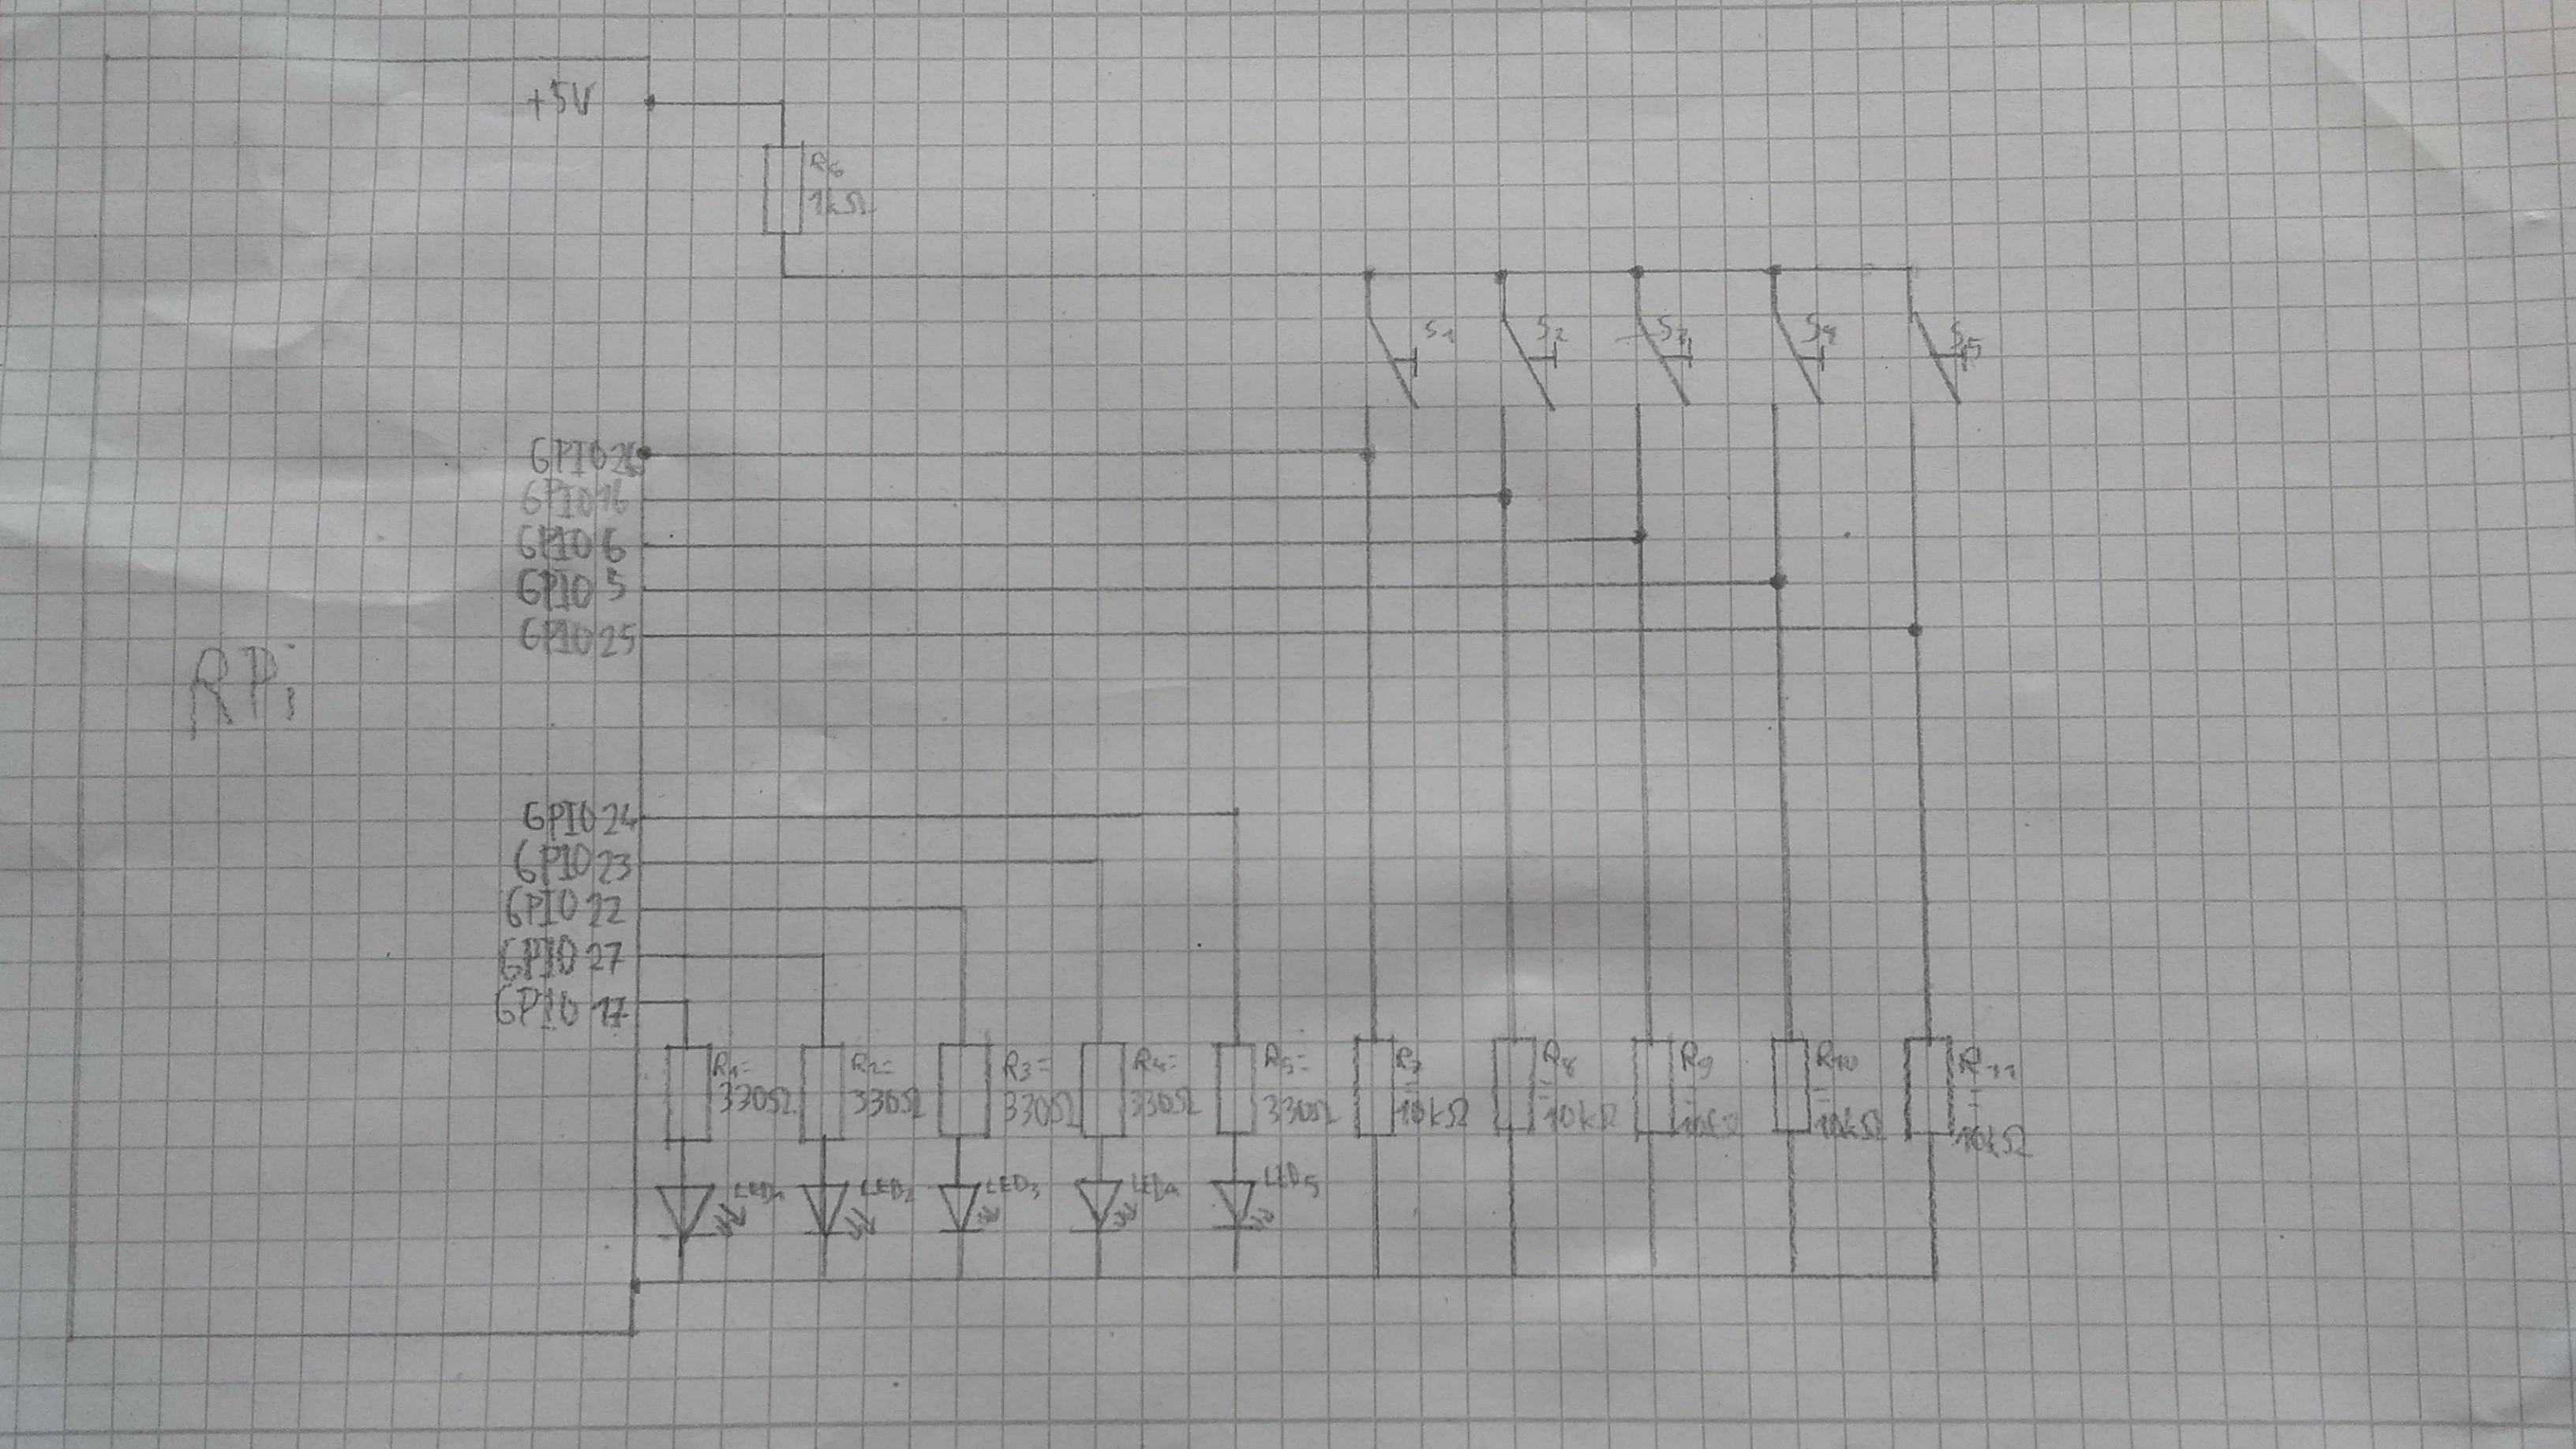 +5V
R6
1kΩ
S1
S2
S3
S4
S5
GPIO 26
GPIO 16
GPIO 6
GPIO 5
GPIO 25
RPi
GPIO 24
GPIO 23
GPIO 22
GPIO 27
GPIO 17
R1=
330Ω
R2=
330Ω
R3=
330Ω
R4=
330Ω
R5=
330Ω
R7
=
10kΩ
R8
=
10kΩ
R9
=
10kΩ
R10
=
10kΩ
R11
=
10kΩ
LED1
LED2
LED3
LED4
LED5